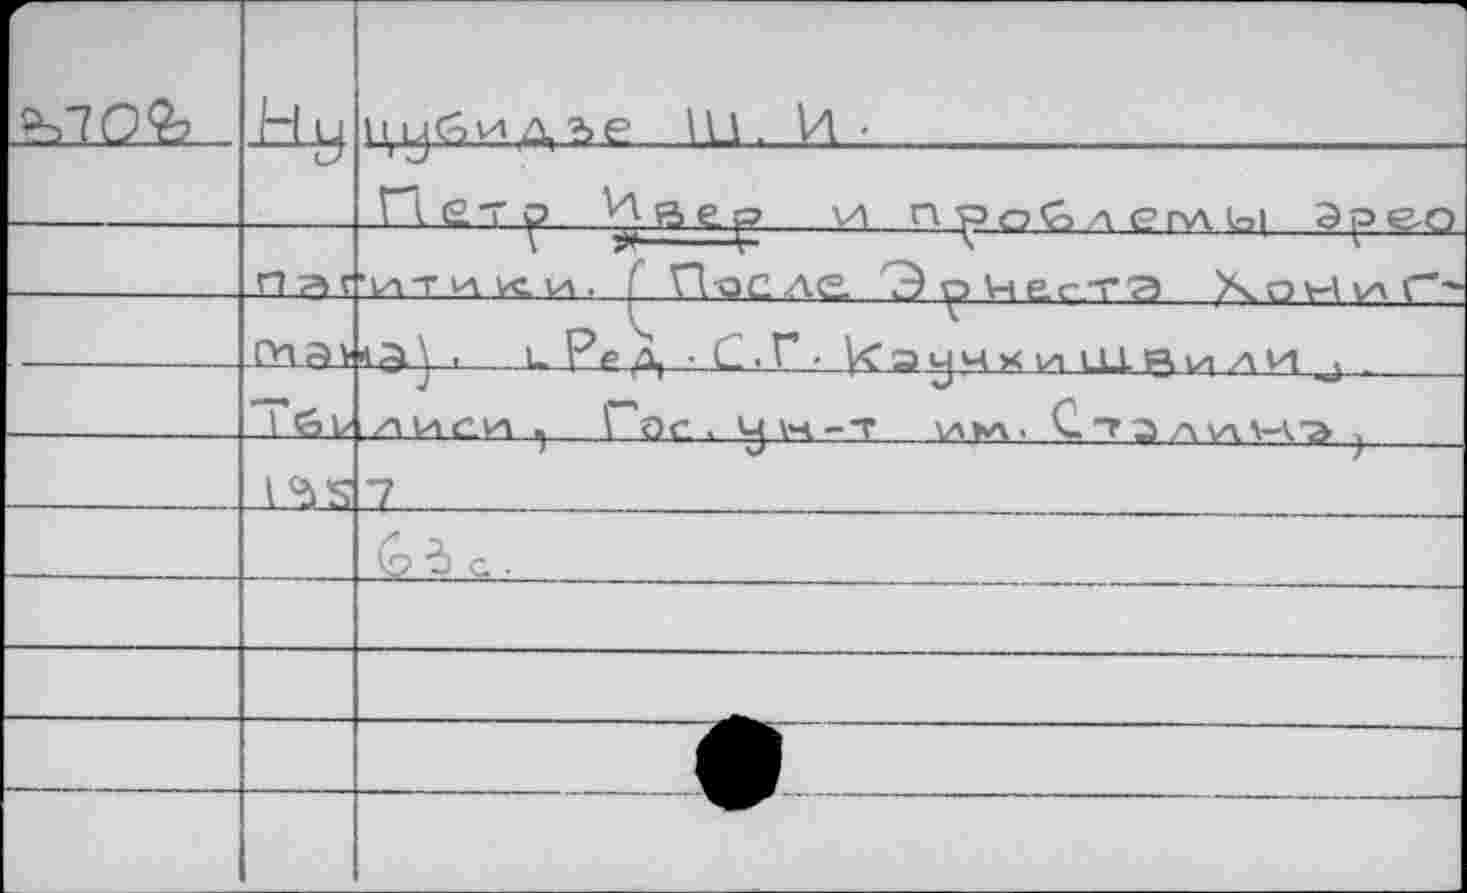 Нуцубидзе Ш. И.
Петр Ивер и проблемы арео
пагитики. (После Эрнеста Хониг-
мана). [Ред. С.Г. Каучхишвили].
Тбилиси, Гос. ун-т им. Сталина,
1957
63 с.